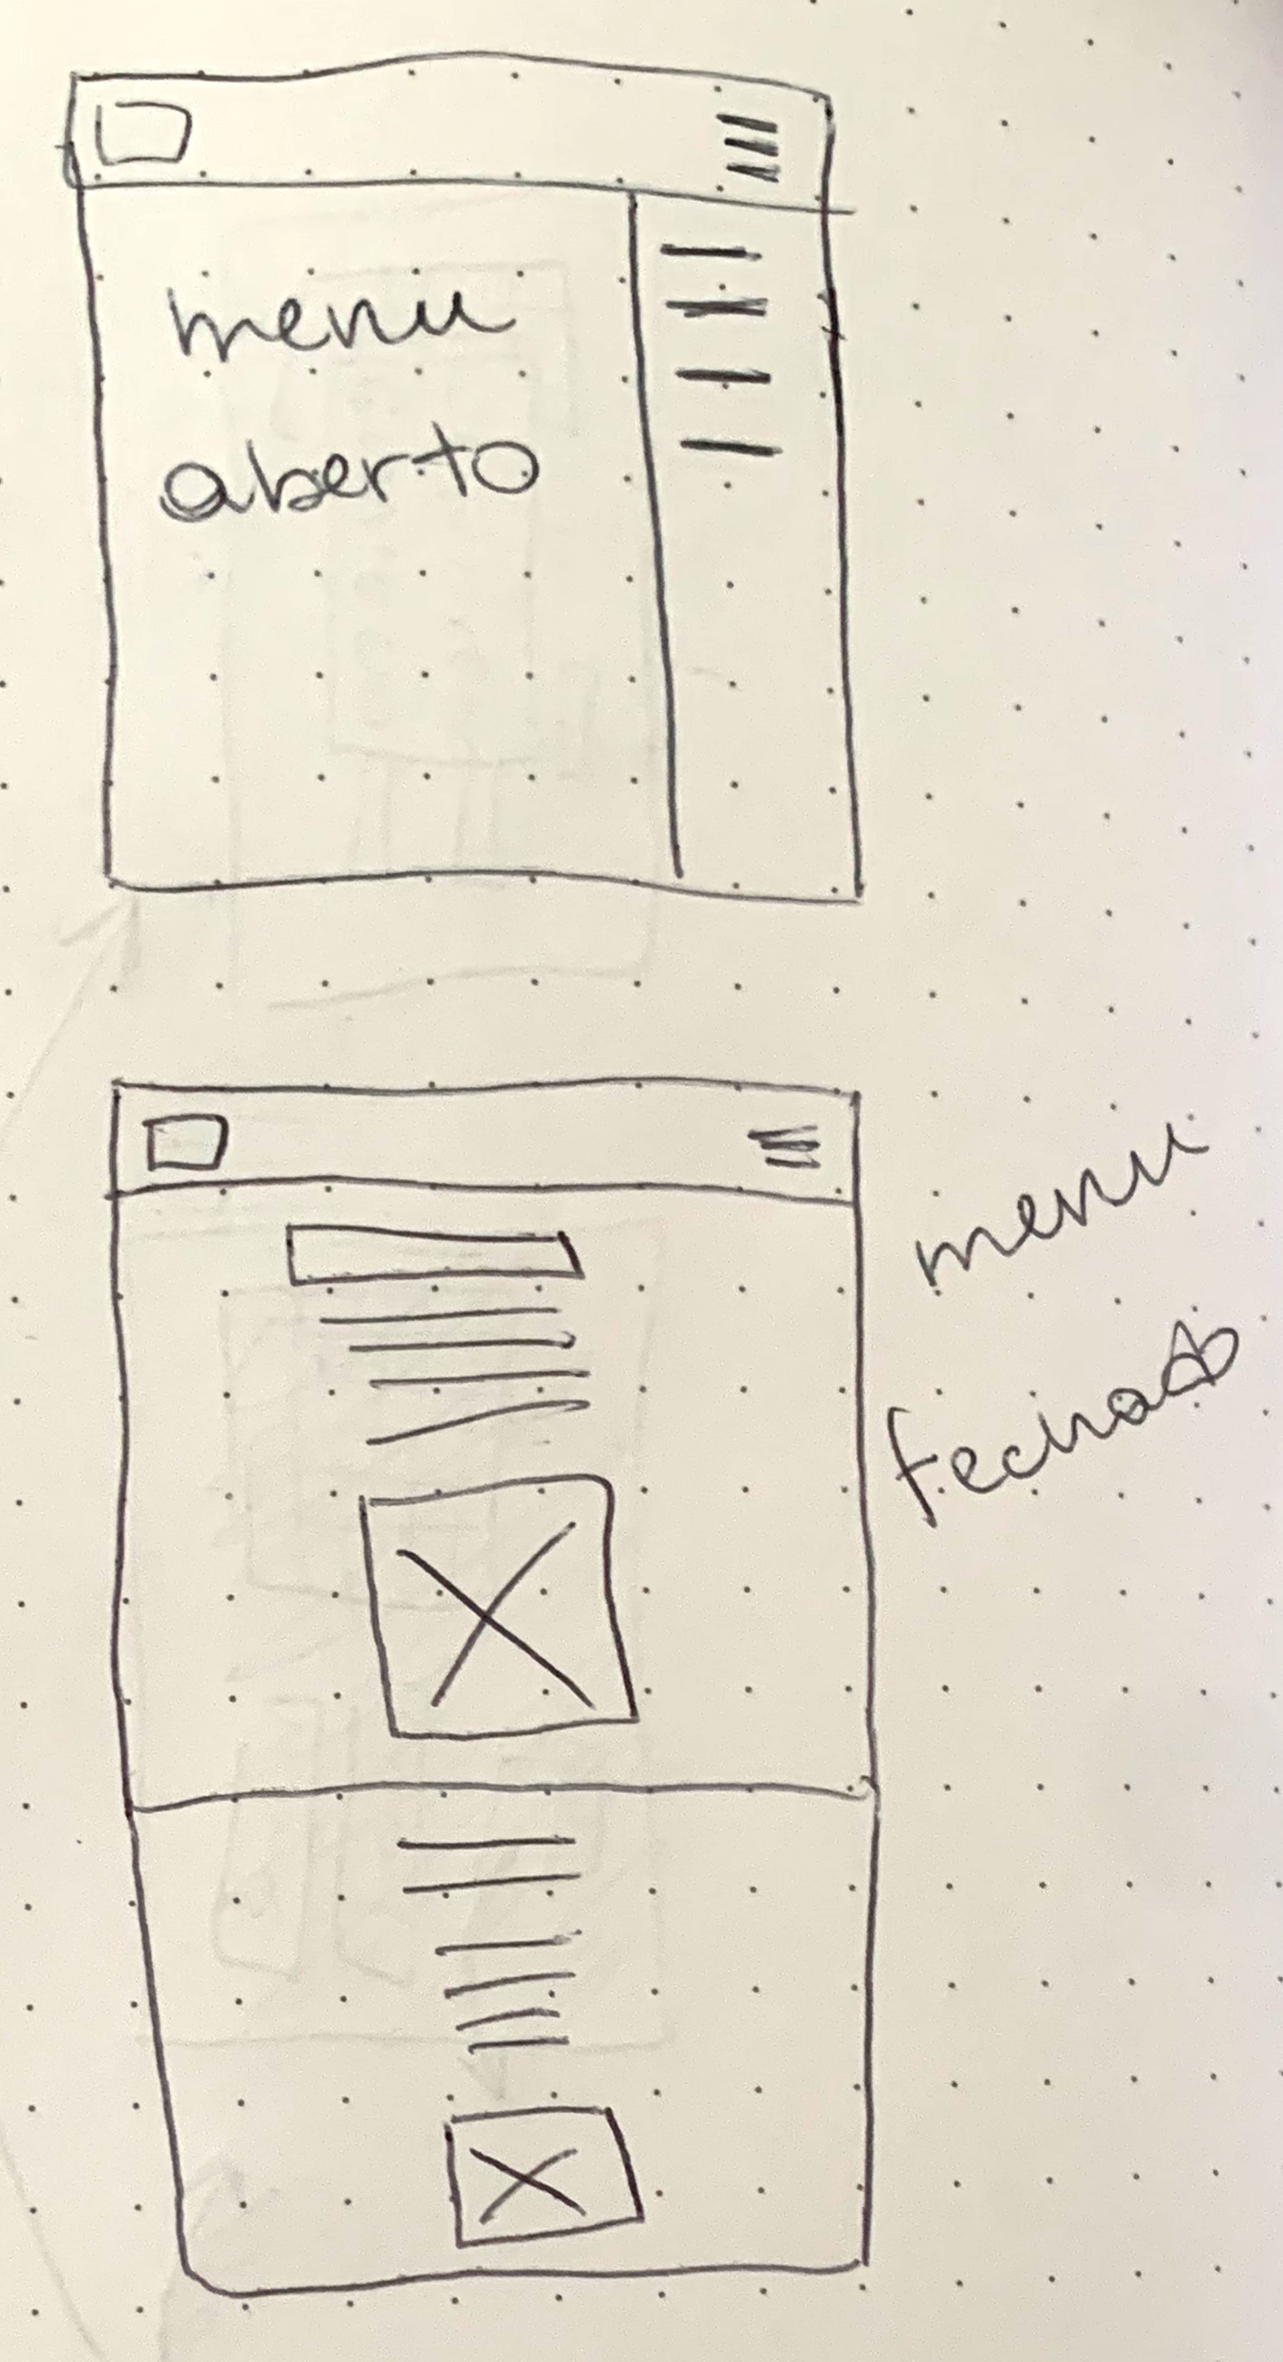 menu
aberto
menu
fechado